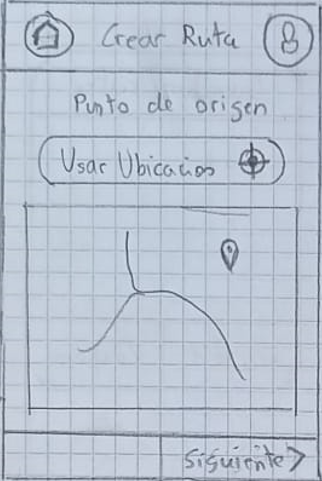 Crear Ruta
Punto de origen
Usar Ubicacion
Siguiente >